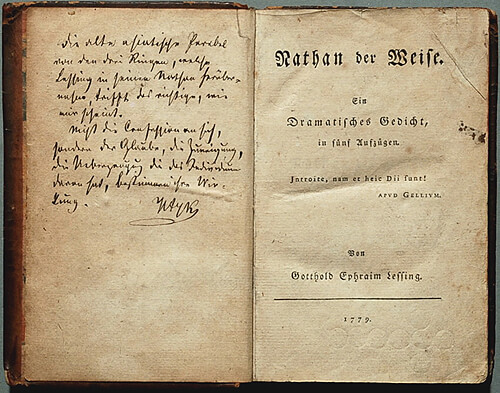 Die alte asiatische Parabel
von den drei Ringen, welche
Lessing in seinem Nathan herüber-
nahm, trifft das richtige, wie
mir scheint.
Nicht die Confession an sich,
sondern der Glaube, die Zuneigung,
die Ueberzeugung die das Individuum
daran hat, bestimmen ihre Wir-
kung.
Nathan der Weise.
Ein
Dramatisches Gedicht,
in fünf Aufzügen.
Introite, nam et heic Dii sunt!
APVD GELLIVM.
Von
Gotthold Ephraim Lessing.
1779.